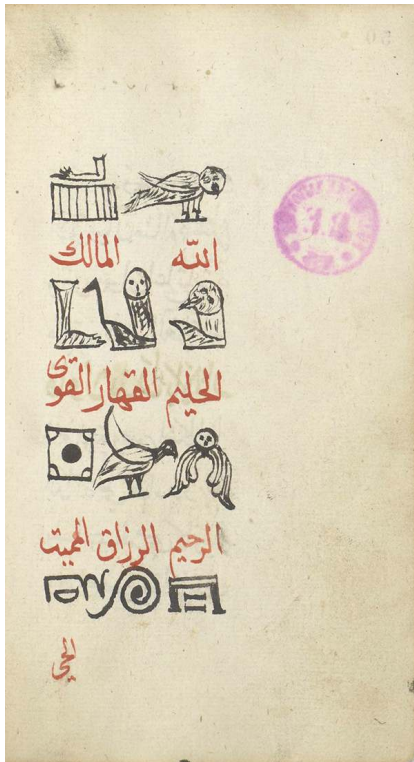 الله المالك
الحليم القهار القوى
الرحيم الرزاق المميت
المحي